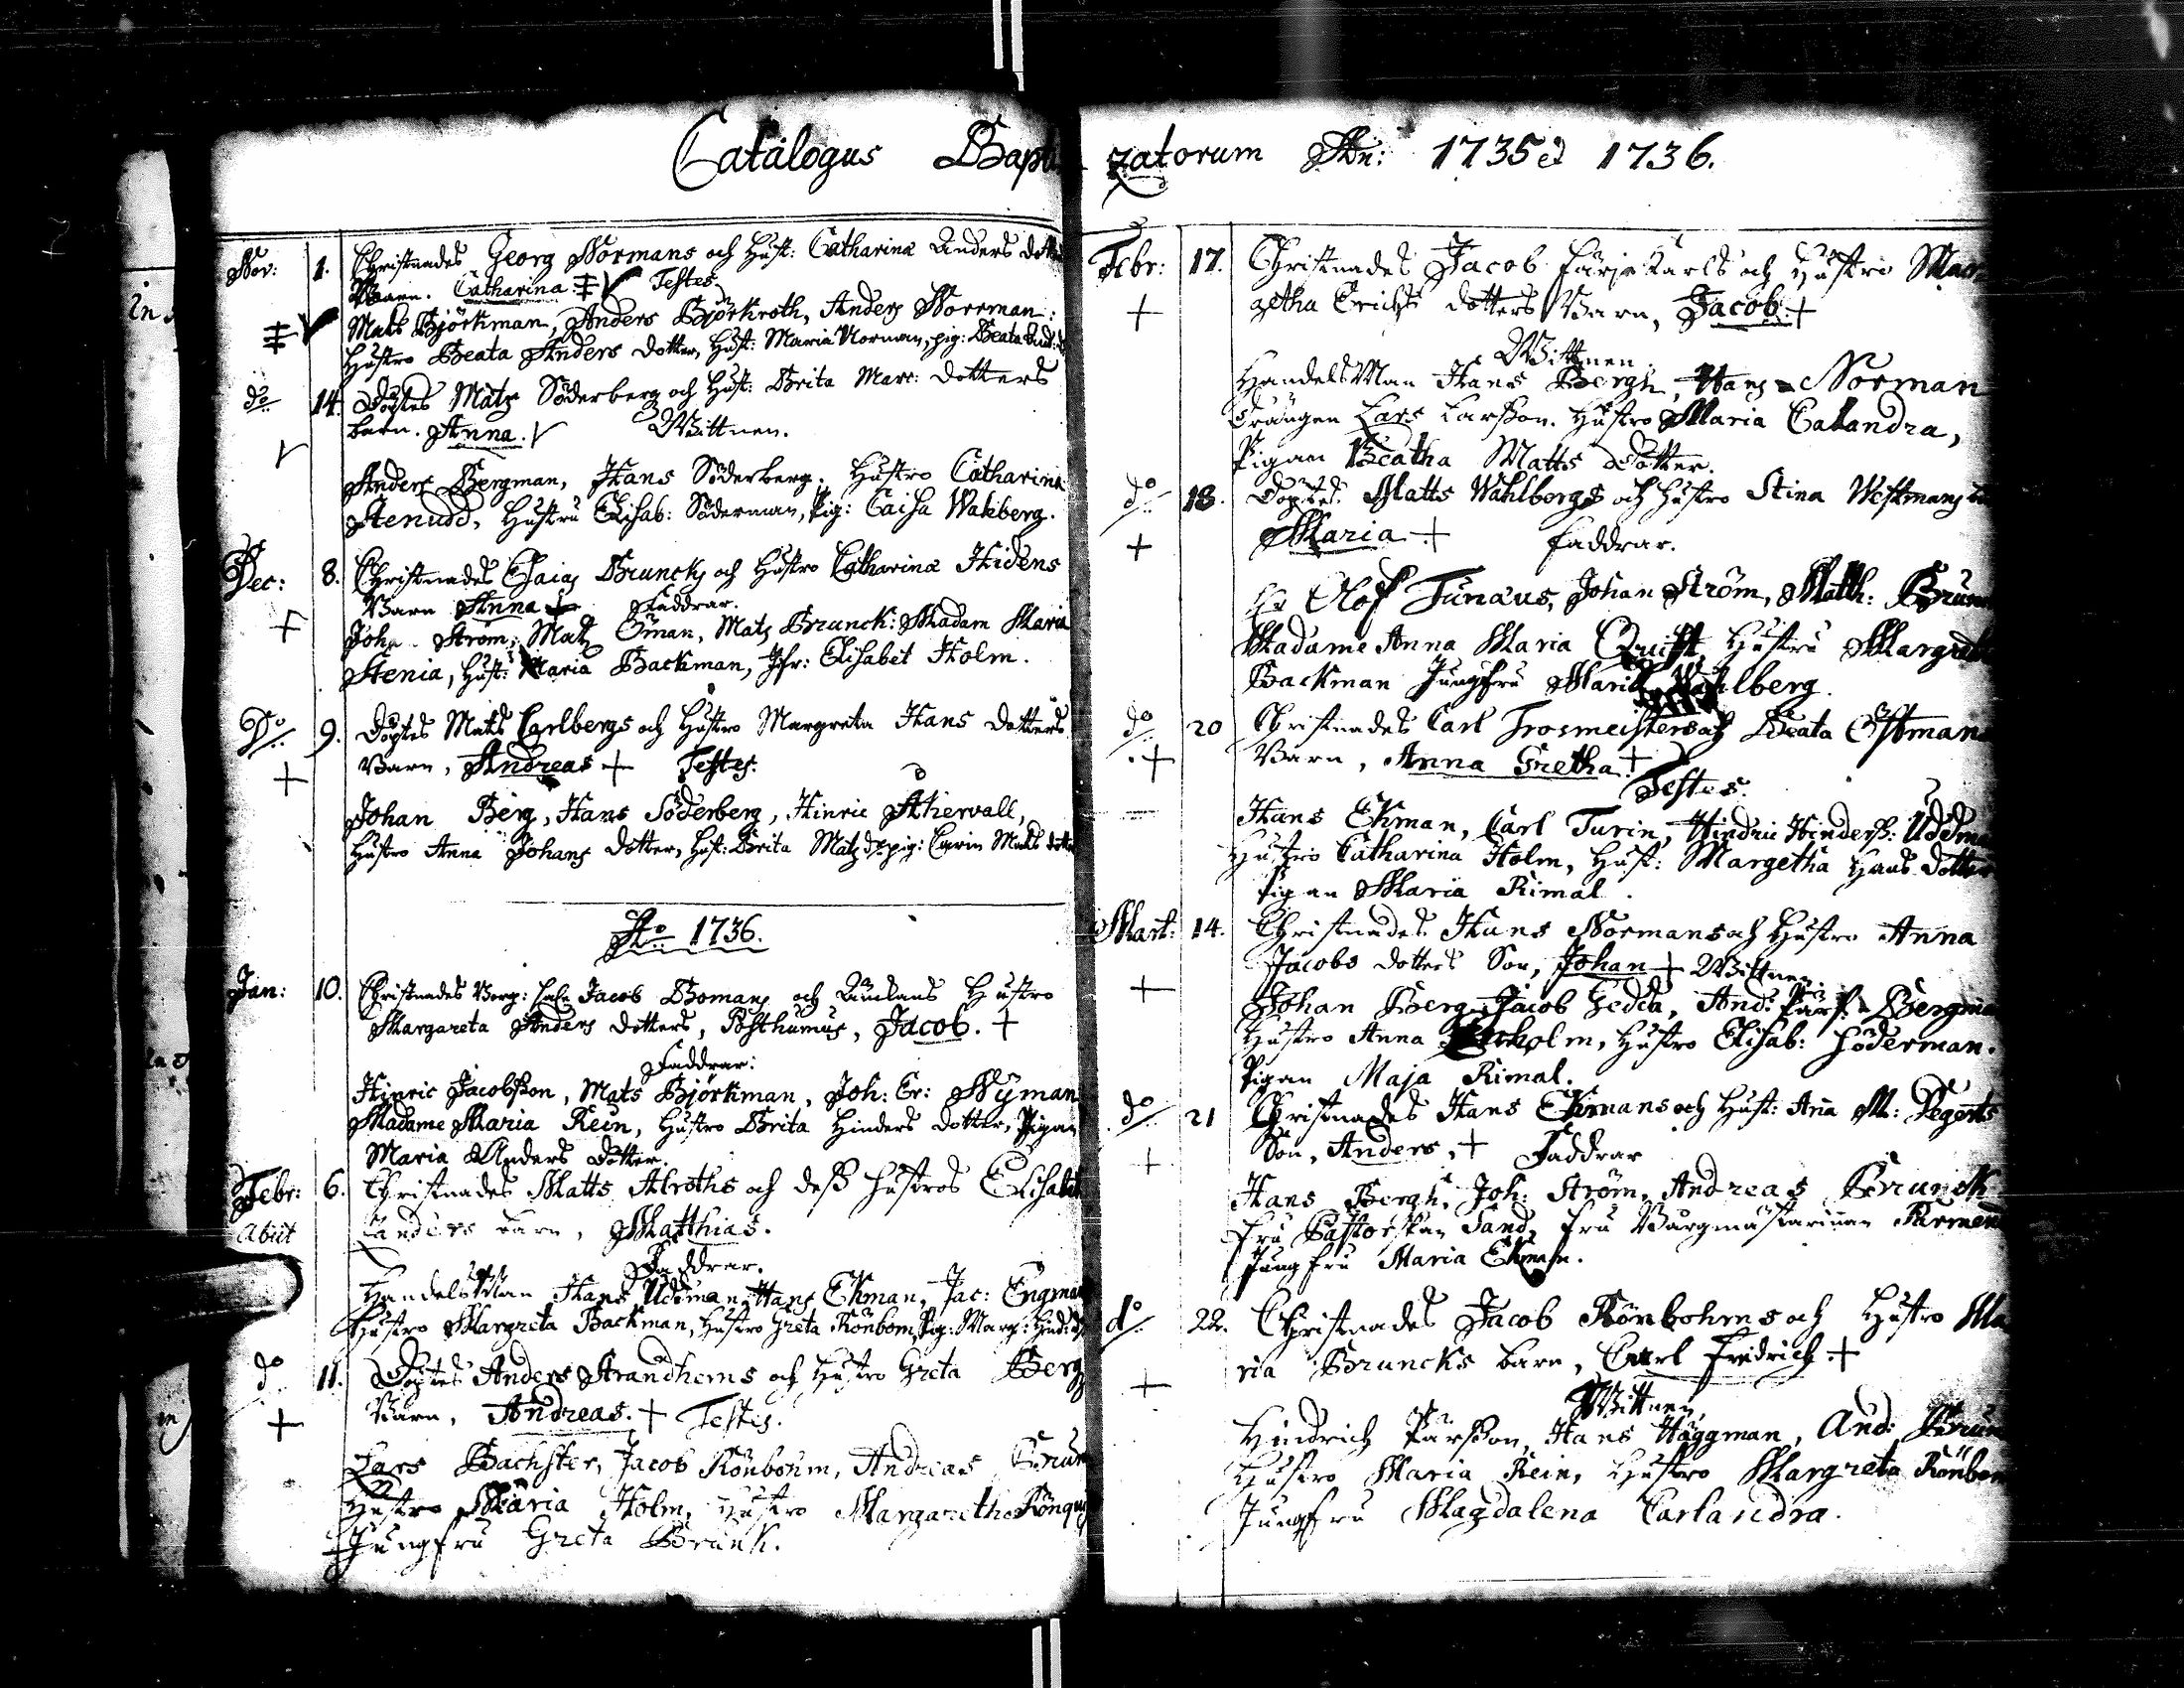 Catalogus Bapti
Nov: 1. Christnades Georg Normans och Hust: Catharina Anders dotters
Barn. Catharina. Testes.
Mats Björkman, Anders Björkroth, Anders Norrman:
Hustro Beata Anders dotter, Hust: Maria Norman, pig: Beata And: d
do 14. Döptes Matz Söderberg och Hust: Brita Marc: dotters
barn. Anna. Wittnen.
Anders Bergman, Hans Söderberg. Hustro Catharina
Stenudd, Hustru Elisab: Söderman, Pig: Caisa Wahlberg.
Dec: 8. Christnades Esaias Bruncks och Hustro Catharina Hidens
Barn Anna + Faddrar.
Joha. Ström, Matz Öman, Mats Brunck: Madam Maria
Stenia, Hust: Maria Backman, Jfr: Elisabet Holm.
Do 9. Döptes Mats Carlbergs och Hustro Margreta Hans dotters
Barn, Andreas + Testes:
Johan Berg, Hans Söderberg, Hinric Ahervall,
Hustro Anna Johans dotter, Hust: Brita Matz dr pig: Carin Mats dotter
Ao 1736.
Jan: 10. Christnades Borg: Jacob Bomans och Hustro
Margareta Anders dotters, Posthumus, Jacob. +
Faddrar:
Hinric Jacobsson, Mats Björkman, Joh: Er: Nyman
Madame Maria Rein, Hustro Brita Hinders dotter, Pigan
Maria Anders dotter.
Febr: 6. Christnades Matts Alroths och dess hustros Elisabet
Abiit barn, Matthias.
Faddrar.
HandelsMan Hans Uddman, Hans Ekman, Jac: Engman
Hustro Margreta Backman, Hustro Greta Rönbom, Pig: Marg: Hind: d
do 11. Döptes Anders Strandhems och Hustro Greta Berg
Barn, Andreas. + Testes.
Lars Bachster, Jacob Rönbohm, Andreas Brun
Hustro Maria Holm, Hustro Margaretha Rönqu
Jungfru Greta Brunk.
zatorum An: 1735 et 1736.
Febr: 17. Christnades Jacob Färje Karls och Hustro Mar
getha Erichs dotters Barn, Jacob. +
Wittnen
HandelsMan Hans Bergh, Hans Norman
Drängen Lars Larsson. Hustro Maria Calandra,
Pigan Beatha Matts Dotter.
do 18. Döptes Matts Wahlbergs och Hustro Stina Westmans
Maria + Faddrar.
Hr Olof Tunæus, Johan Ström, Matth: Brun
Madame Anna Maria Quist, Hustru Margreta
Backman Jungfru Maria Wahlberg.
do 20 Christnades Carl Trosmeisters och Beata Östmans
Barn, Anna Gretha. +
Testes.
Hans Ekman, Carl Turin, Hindric Hinderss: Uddman
Hustro Catharina Holm, Hust: Margetha Hans Dotter
Pigan Maria Rimal.
Mart: 14. Christnades Hans Normans och Hustro Anna
Jacobs dotters Son, Johan + Wittnen
Johan Berg, Jacob Gedda, And: Pärs: Bergman
Hustro Anna holm, Hustro Elisab: Söderman.
Pigan Maja Rimal.
do 21 Christnades Hans Ekmans och Hust: Anna M: Degerts
Son, Anders, + Faddrar
Hans Bergh, Joh: Ström, Andreas Brunck
Fru Pastorskan Sand, Fru Burgmästarinnan Parmen
Jungfru Maria Ekman.
do 22. Christnades Jacob Rönbohms och Hustro Ma
ria Bruncks barn, Carl Fredrich +
Wittnen
Hindrich Pärsson, Hans Häggman, And: Brun
Hustro Maria Rein, Hustro Margreta Rönbom
Jungfru Magdalena Carlandra.